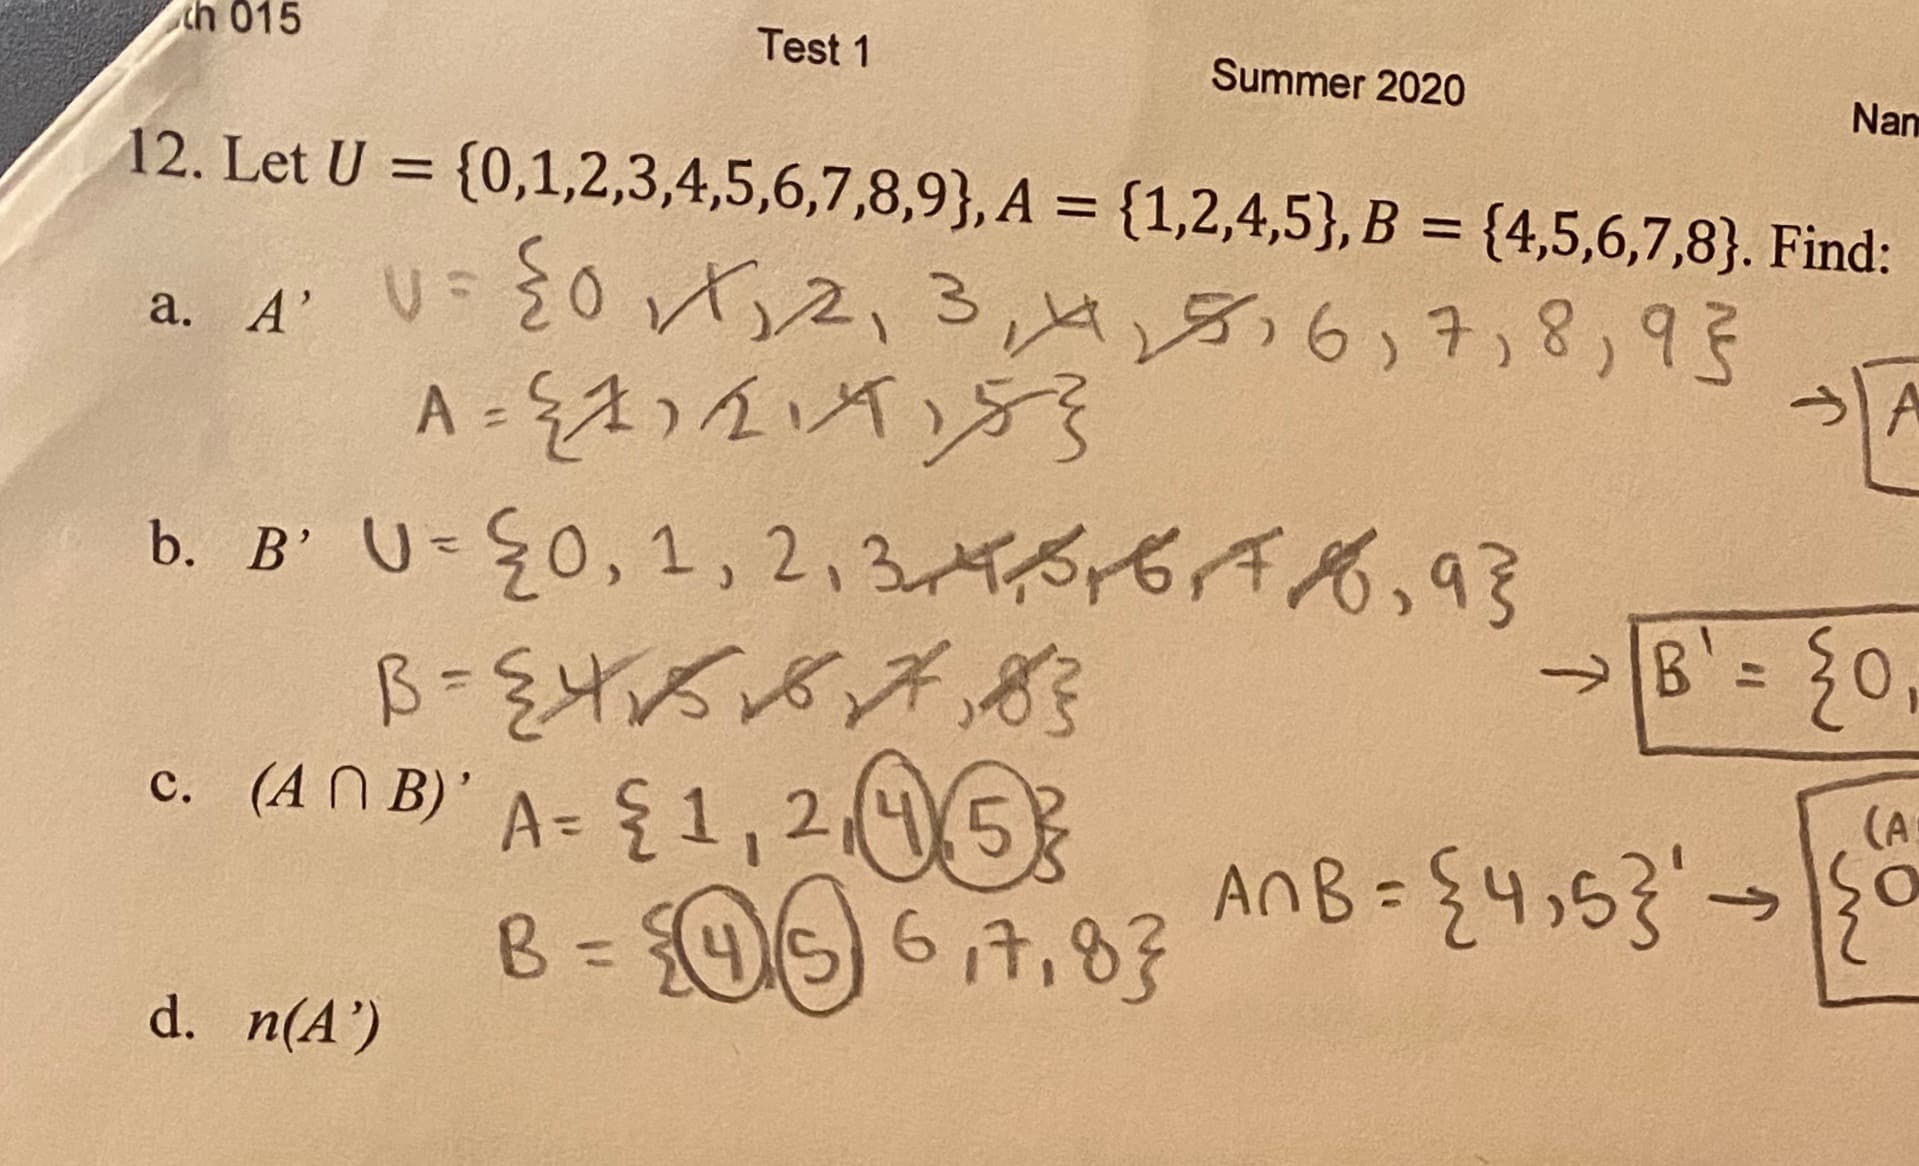 015
Test 1
Summer 2020
12. Let U = {0,1,2,3,4,5,6,7,8,9}, A = {1,2,4,5}, B = {4,5,6,7,8}. Find:
a. A’ U = {0, 1, 2, 3, 4, 5, 6, 7, 8, 9}
A = {1, 2, 4, 5}
→ A
b. B’ U = {0, 1, 2, 3, 4, 5, 6, 7, 8, 9}
B = {4, 5, 6, 7, 8}
→ B' = {0,
c. (A ∩ B)’ A = {1, 2, 4, 5}
B = {4, 5, 6, 7, 8}
A∩B = {4, 5}' →
(A
{0
d. n(A’)